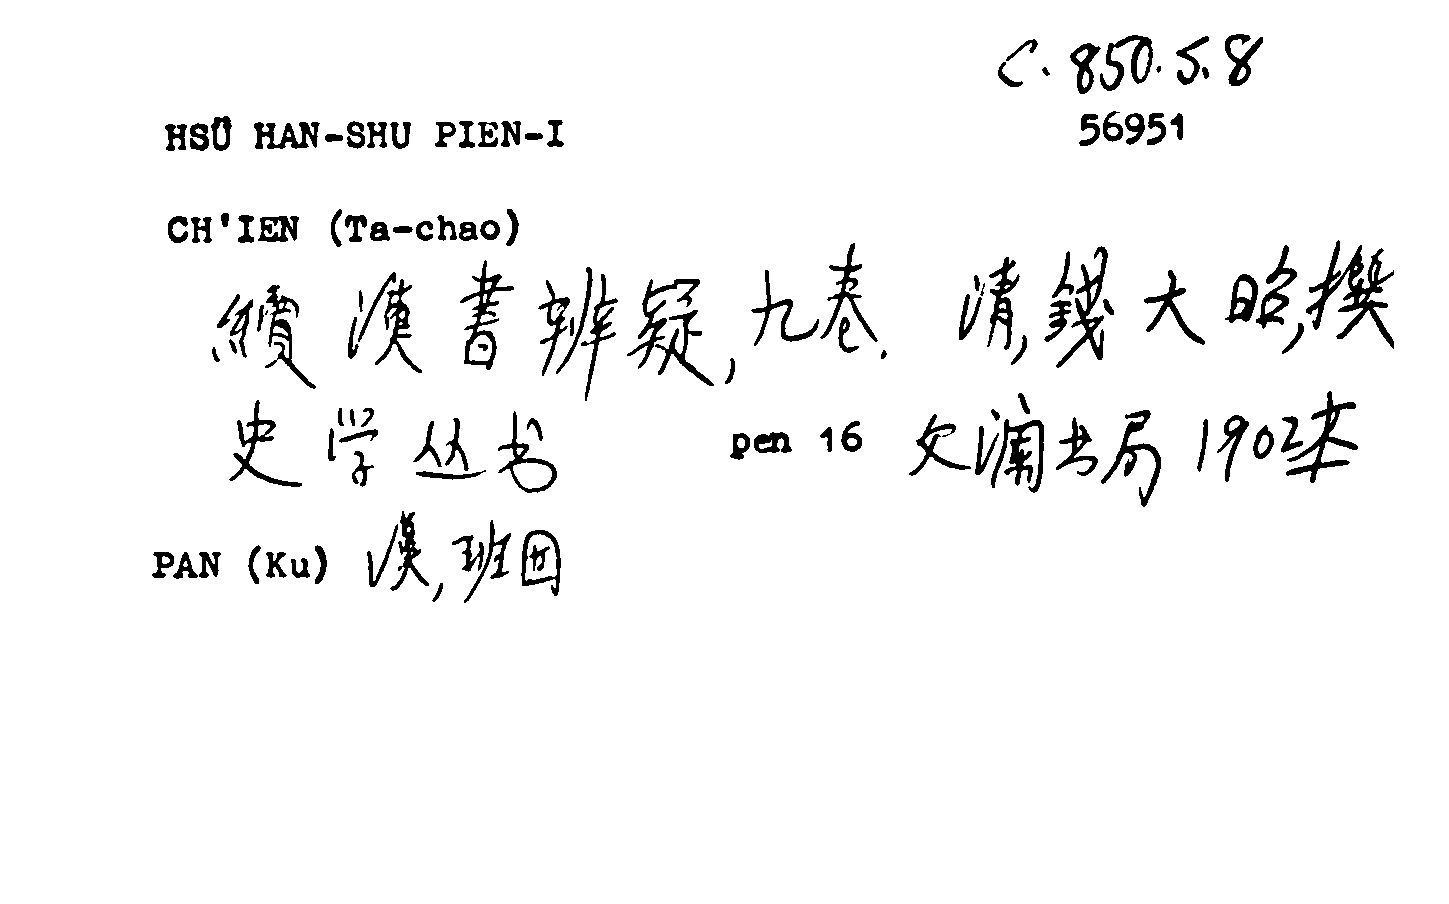 C. 850.5.8
56951
HSÜ HAN-SHU PIEN-I
CH'IEN (Ta-chao)
續漢書辨疑, 九卷. 清, 錢大昭, 撰
史学丛书 pen 16 文瀾书局 1902
PAN (Ku) 漢, 班固